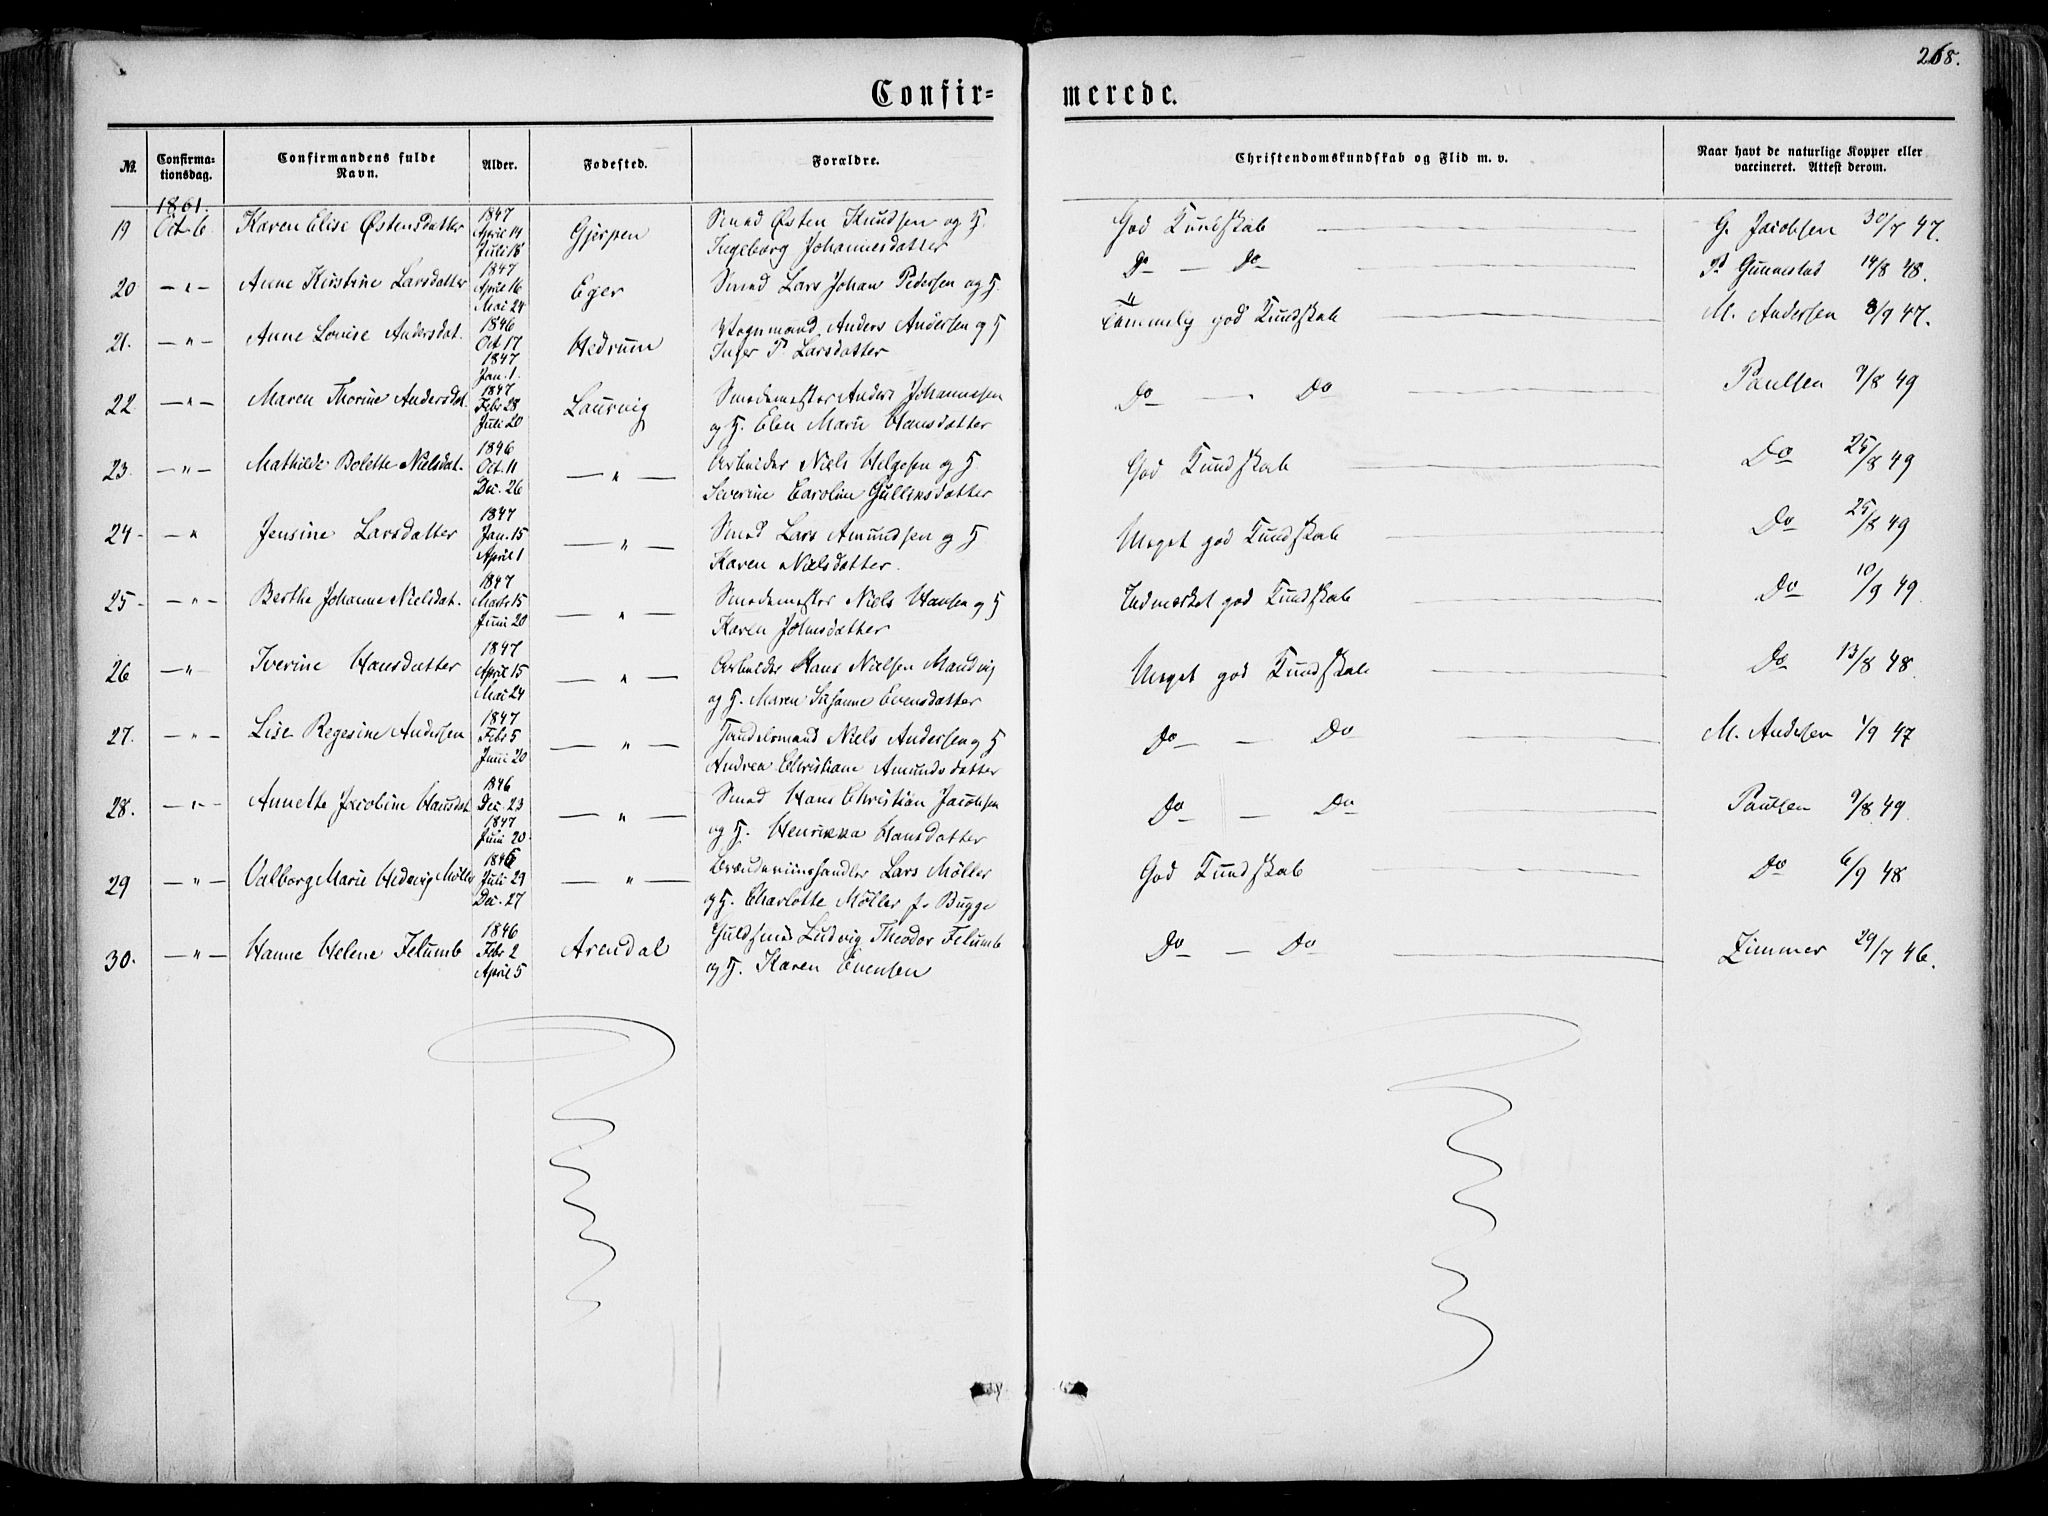 268.
Confir= merede.
No. Confirma-tionsdag. Confirmandens fulde Navn. Alder. Fodested. Forældre. Christendomskundskab og Flid m. v. Naar havt de naturlige Kopper eller vaccineret. Attest derom.
1861.
19 Oct 6. Karen Elise Østensdatter 1847 April 14 Juli 18 Gjerpen Smed Østen Knudsen og H. God Kundskab G. Jacobsen 30/7 47.
Ingeborg Johannesdatter
20 — " — Anne Kirstine Larsdatter 1847 April 16 Mai 24 Eger Smed Lars Johan Pedersen og H. Do — Do P. Gunnestad 14/8 48.
21. — " — Anne Louise Andersdat. 1846 Oct 17 1847 Jan. 1. Hedrum Vognmand Anders Andersen og H Temmelig god Kundskab M. Andersen 8/9 47.
Inger P. Larsdatter
22 — " — Maren Thorine Andersdat. 1847 Febr 28 Juli 20 Laurvig Smedemester Anders Johannesen Do — Do Paulsen 9/8 49
og H. Elen Marie Hansdatter
23. — " — Mathilde Bolette Nielsdat. 1846 Oct. 11 Dec. 26 — " — Arbeider Niels Helgesen og H. God Kundskab Do 25/8 49
Severine Caroline Gulliksdatter
24 - — " Jensine Larsdatter 1847 Jan. 15 April 1 — " — Smed Lars Amundsen og H Meget god Kundskab Do 25/8 49
Karen Nielsdatter.
25 - — " — Berthe Johanne Nielsdat. 1847 Marts 15 Juni 20 — " — Smedemester Niels Hansen og H Udmærket god Kundskab Do 10/9 49
Karen Johnsdatter
26 — " — Iverine Hansdatter 1847 April 15 Mai 24 — " — Arbeider Hans Nielsen Mandvig Meget god Kundskab Do 13/8 48.
og H. Maren Susanne Evensdatter
27. — " — Lise Regesine Anderssen 1847 Febr 5 Juni 20 — " — Handelsmand Niels Andersen og H Do — Do M. Andersen 1/9 47
Andrea Christiane Amundsdatter
28. — " — Annette Jacobine Hansdat. 1846 Dec. 23 1847 Juni 20 — " — Smed Hans Christian Jacobsen Do — Do Paulsen 9/8 49.
og H. Henrikka Hansdatter
29 — " — Valborg Marie Hedevig Möller 1846 Juli 29 Dec. 27 — " — Brændeviinshandler Lars Möller God Kundskab Do 6/9 48
og H. Charlotte Möller f. Bugge
30. — " — Hanne Helene Felumb 1846 Febr 2 April 5 Arendal Guldsmed Ludvig Theodor Felumb Do — Do Zimmer 29/7 46.
og H. Karen Evensen